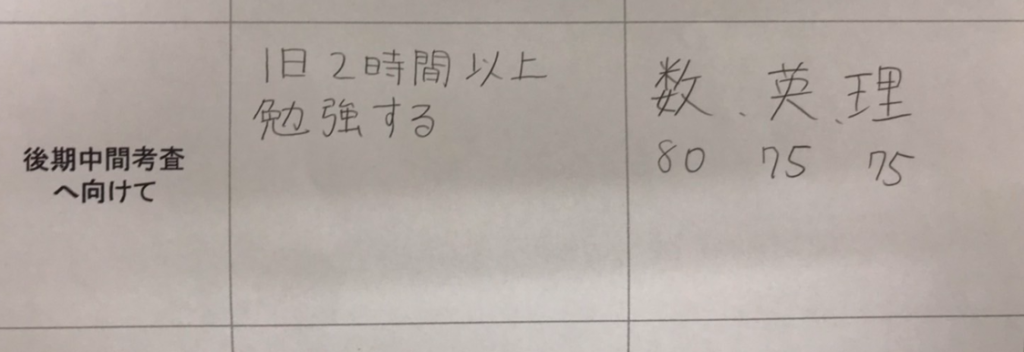 後期中間考査
へ向けて
1日2時間以上
勉強する
数、英、理
80 75 75